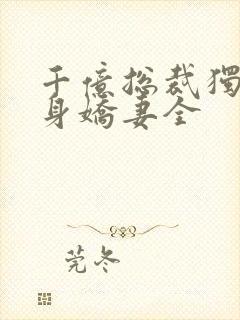 千億總裁獨
身嬌妻全
莞冬